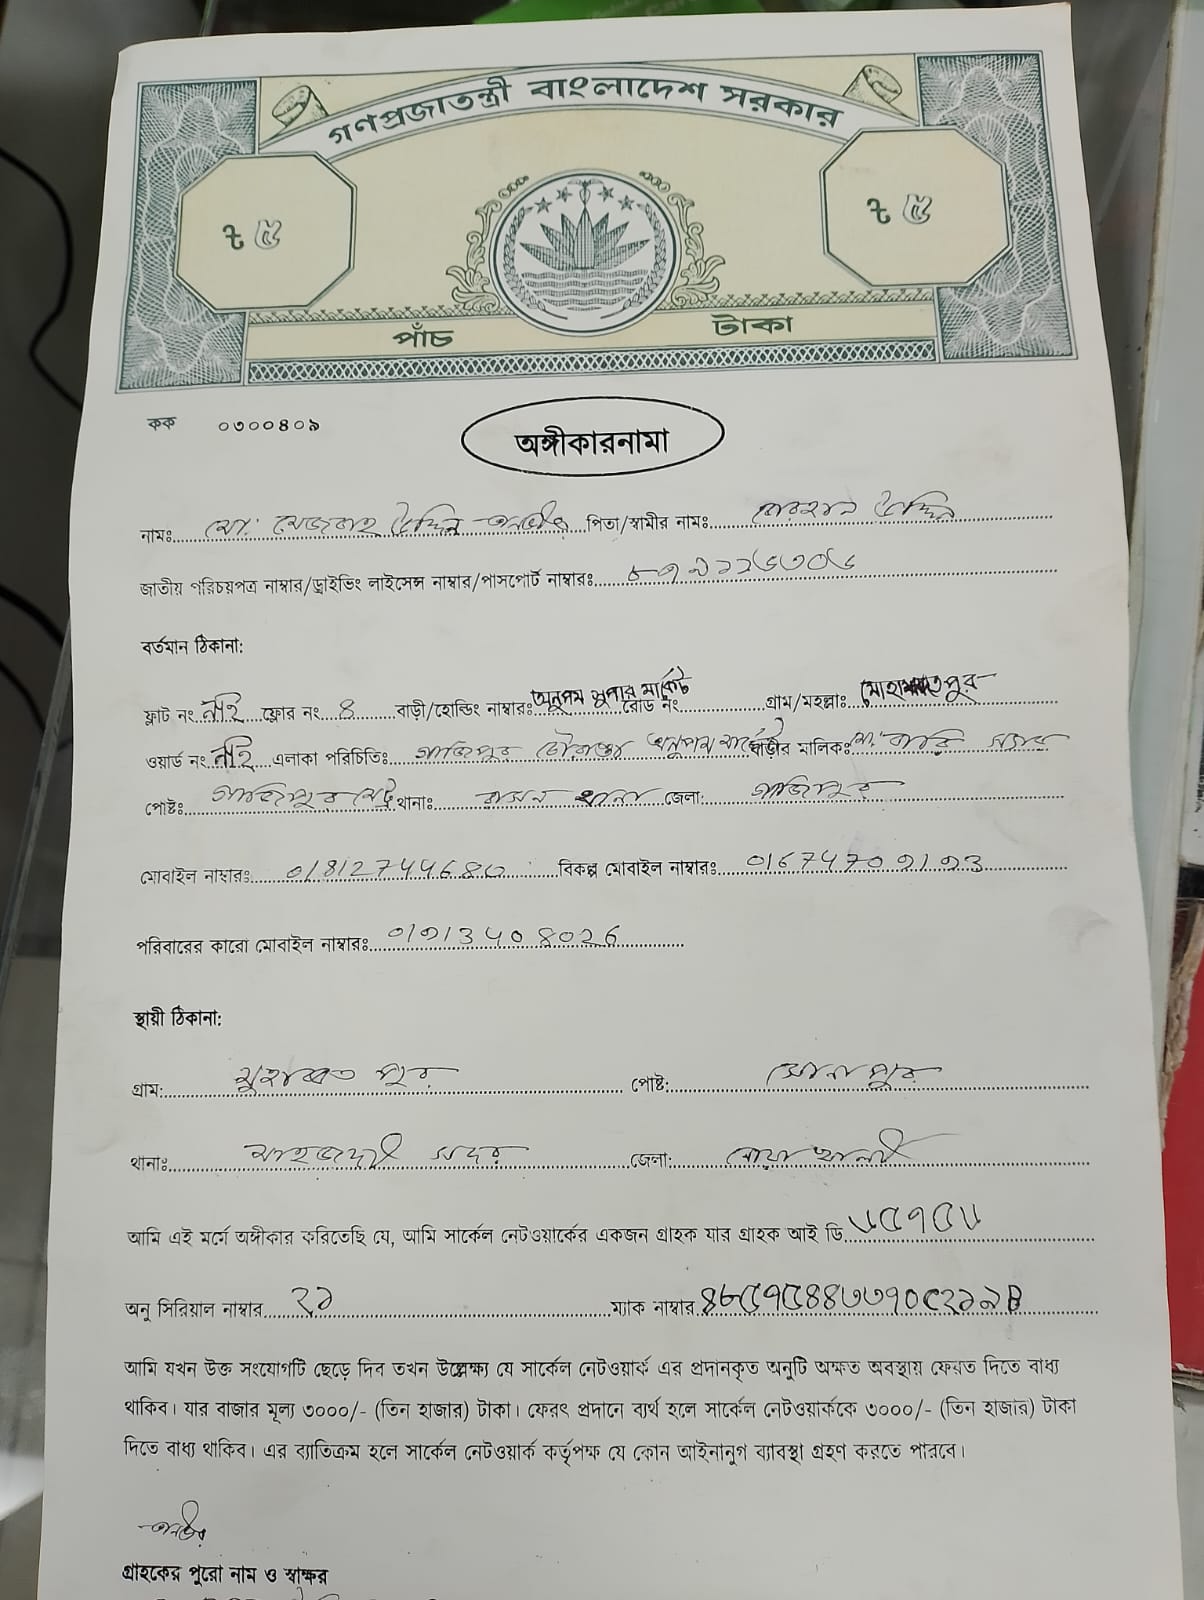 গণপ্রজাতন্ত্রী বাংলাদেশ সরকার
ট ৫
ট ৫
পাঁচ টাকা
কক ০৩০০৪০৯
অঙ্গীকারনামা
নামঃ মো: মেজবাহ উদ্দিন পিতা/স্বামীর নামঃ উদ্দিন
জাতীয় পরিচয়পত্র নাম্বার/ড্রাইভিং লাইসেন্স নাম্বার/পাসপোর্ট নাম্বারঃ
বর্তমান ঠিকানা:
ফ্লাট নং নাই ফ্লোর নং ৪ বাড়ী/হোল্ডিং নাম্বারঃ অনুপম সুপার মার্কেট রোড নং গ্রাম/মহল্লাঃ
ওয়ার্ড নং নাই এলাকা পরিচিতিঃ গাজিপুর চৌরাস্তা অনুপম মার্কেট বাড়ীর মালিকঃ
পোষ্টঃ গাজিপুর থানাঃ বাসন থানা জেলা: গাজিপুর
মোবাইল নাম্বারঃ বিকল্প মোবাইল নাম্বারঃ
পরিবারের কারো মোবাইল নাম্বারঃ
স্থায়ী ঠিকানা:
গ্রাম: পুর পোষ্ট: সোনাপুর
থানাঃ মাইজদী সদর জেলা: নোয়াখালী
আমি এই মর্মে অঙ্গীকার করিতেছি যে, আমি সার্কেল নেটওয়ার্কের একজন গ্রাহক যার গ্রাহক আই ডি
অনু সিরিয়াল নাম্বার ২৯ ম্যাক নাম্বার
আমি যখন উক্ত সংযোগটি ছেড়ে দিব তখন উল্লেক্ষ্য যে সার্কেল নেটওয়ার্ক এর প্রদানকৃত অনুটি অক্ষত অবস্থায় ফেরত দিতে বাধ্য
থাকিব। যার বাজার মূল্য ৩০০০/- (তিন হাজার) টাকা। ফেরৎ প্রদানে ব্যর্থ হলে সার্কেল নেটওয়ার্ককে ৩০০০/- (তিন হাজার) টাকা
দিতে বাধ্য থাকিব। এর ব্যাতিক্রম হলে সার্কেল নেটওয়ার্ক কর্তৃপক্ষ যে কোন আইনানুগ ব্যাবস্থা গ্রহণ করতে পারবে।
গ্রাহকের পুরো নাম ও স্বাক্ষর